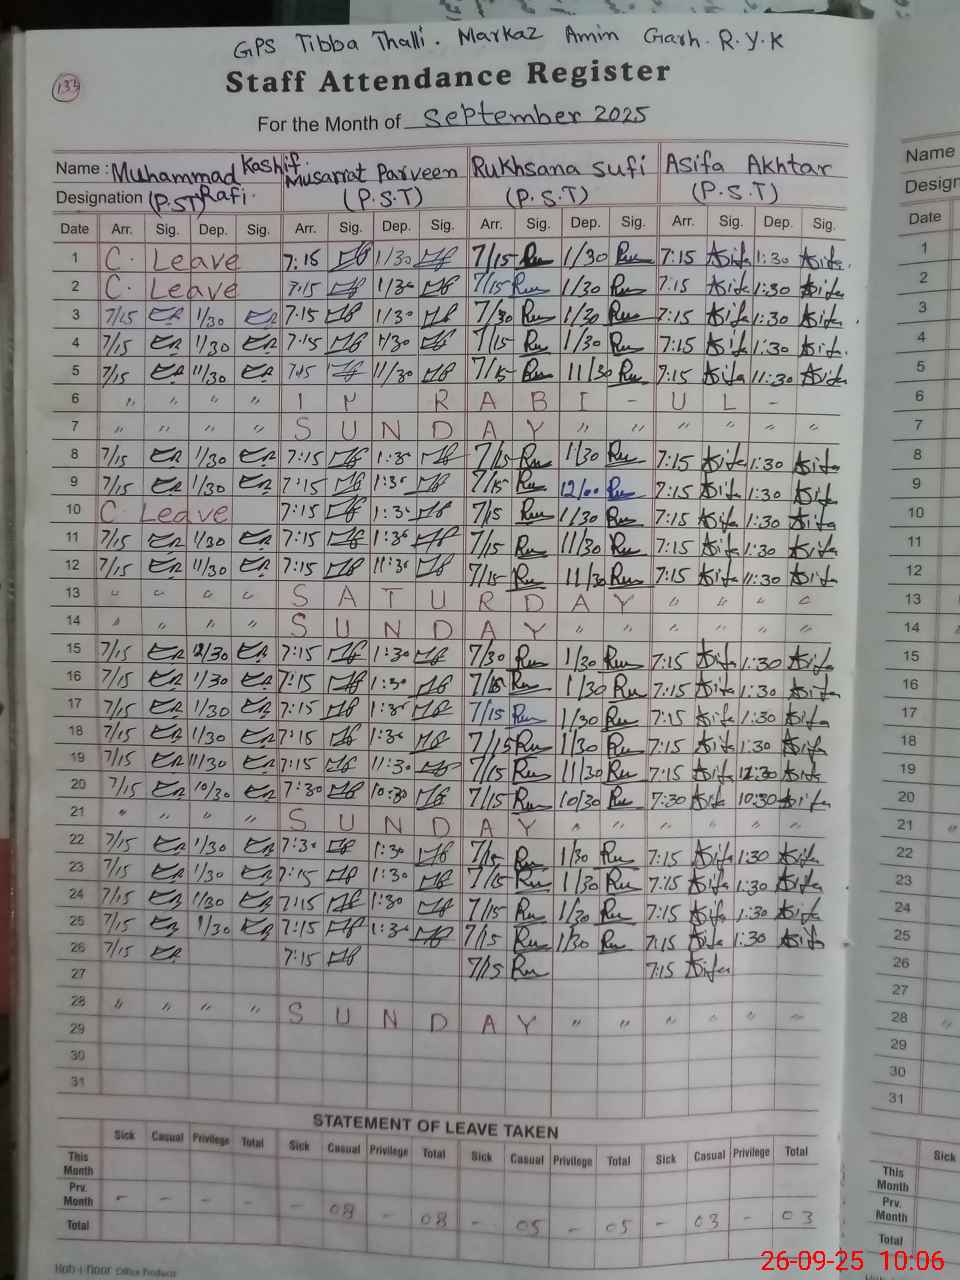 GPS Tibba Thalli. Markaz Amin Garh. R.Y.K
133
Staff Attendance Register
For the Month of September 2025
Name : Muhammad Kashif Rafi. Musarrat Parveen Rukhsana Sufi Asifa Akhtar
Designation (P.ST) (P.S.T) (P.S.T) (P.S.T)
Date Arr. Sig. Dep. Sig. Arr. Sig. Dep. Sig. Arr. Sig. Dep. Sig. Arr. Sig. Dep. Sig.
1 C. Leave 7:15 1/30 7/15 Ru 1/30 Ru 7:15 Asifa 1:30 Asifa
2 C. Leave 7:15 1/30 7/15 Ru 1/30 Ru 7:15 Asifa 1:30 Asifa
3 7/15 1/30 7:15 1/30 7/30 Ru 1/30 Ru 7:15 Asifa 1:30 Asifa
4 7/15 1/30 7:15 1/30 7/15 Ru 1/30 Ru 7:15 Asifa 1:30 Asifa
5 7/15 11/30 7:15 11/30 7/15 Ru 11/30 Ru 7:15 Asifa 11:30 Asifa
6 " " " " R A B I - U L -
7 " " " " S U N D A Y " " " " " "
8 7/15 1/30 7:15 1:30 7/15 Ru 1/30 Ru 7:15 Asifa 1:30 Asifa
9 7/15 1/30 7:15 1:30 7/15 Ru 12/00 Ru 7:15 Asifa 1:30 Asifa
10 C Leave 7:15 1:30 7/15 Ru 1/30 Ru 7:15 Asifa 1:30 Asifa
11 7/15 1/30 7:15 1:30 7/15 Ru 11/30 Ru 7:15 Asifa 1:30 Asifa
12 7/15 11/30 7:15 11:30 7/15 Ru 11/30 Ru 7:15 Asifa 11:30 Asifa
13 " " " " S A T U R D A Y " " " "
14 " " " " S U N D A Y " " " " " "
15 7/15 7:15 1:30 7/30 Ru 1/30 Ru 7:15 Asifa 1:30 Asifa
16 7/15 1/30 7:15 1:30 7/15 Ru 1/30 Ru 7:15 Asifa 1:30 Asifa
17 7/15 1/30 7:15 1:30 7/15 Ru 1/30 Ru 7:15 Asifa 1:30 Asifa
18 7/15 1/30 7:15 1:30 7/15 Ru 1/30 Ru 7:15 Asifa 1:30 Asifa
19 7/15 11/30 7:15 11:30 7/15 Ru 11/30 Ru 7:15 Asifa Asifa
20 7/15 10/30 7:30 10:30 7/15 Ru 10/30 Ru 7:30 Asifa 10:30 Asifa
21 " " " " S U N D A Y " " " " " "
22 7/15 1/30 7:30 1:30 7/15 Ru 1/30 Ru 7:15 Asifa 1:30 Asifa
23 7/15 1/30 7:15 1:30 7/15 Ru 1/30 Ru 7:15 Asifa 1:30 Asifa
24 7/15 1/30 7:15 1:30 7/15 Ru 1/30 Ru 7:15 Asifa 1:30 Asifa
25 7/15 1/30 7:15 1:30 7/15 Ru 1/30 Ru 7:15 Asifa 1:30 Asifa
26 7/15 7:15 7/15 Ru 7:15 Asifa
27
28 " " " " S U N D A Y " " " " " "
29
30
31
STATEMENT OF LEAVE TAKEN
Sick Casual Privilege Total Sick Casual Privilege Total Sick Casual Privilege Total Sick Casual Privilege Total
This Month
Prv. Month - - - - - 08 - 08 - 05 - 05 - 03 - 03
Total
Name
Design
Date
1
2
3
4
5
6
7
8
9
10
11
12
13
14
15
16
17
18
19
20
21
22
23
24
25
26
27
28
29
30
31
Sick
This Month
Prv. Month
Total
26-09-25 10:06